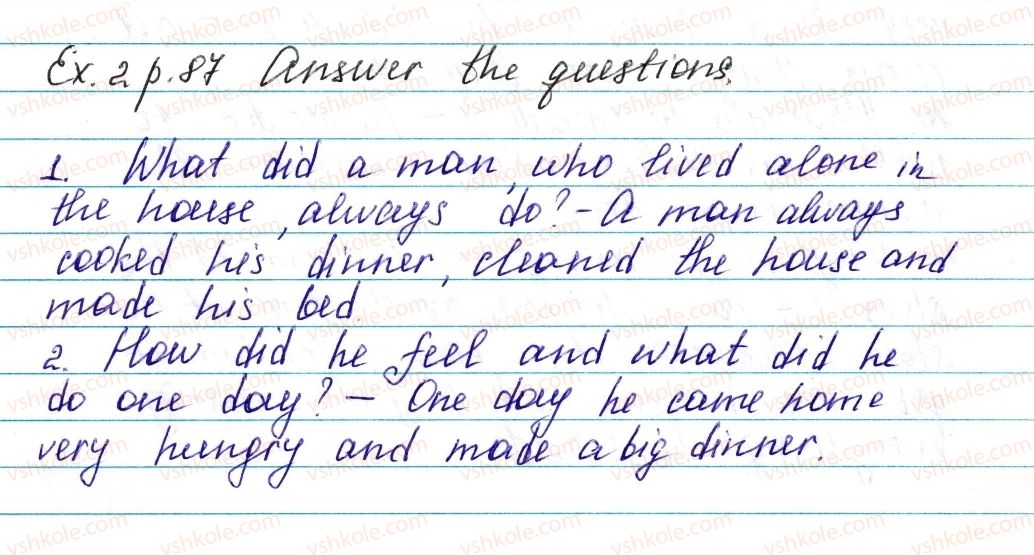 Ex. 2 p. 87 Answer the questions.
1. What did a man, who lived alone in
the house, always do? - A man always
cooked his dinner, cleaned the house and
made his bed.
2. How did he feel and what did he
do one day? - One day he came home
very hungry and made a big dinner.